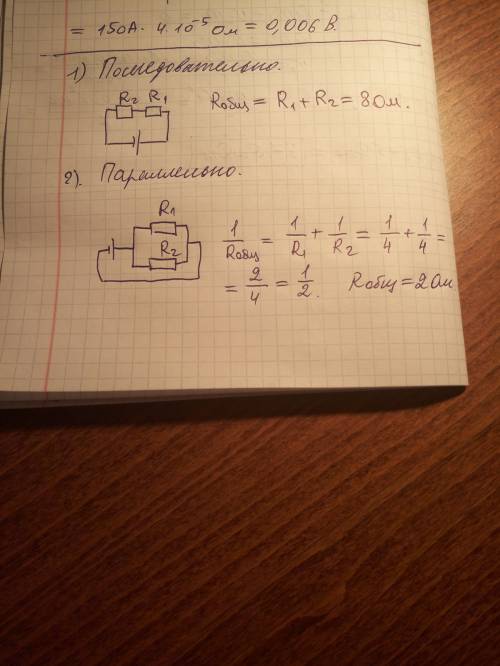 = 150А · 4·10⁻⁵ Ом = 0,006 В.
1) Последовательно.
R₂ R₁
Rобщ = R₁ + R₂ = 8 Ом.
2). Параллельно.
R₁
R₂
1/Rобщ = 1/R₁ + 1/R₂ = 1/4 + 1/4 =
= 2/4 = 1/2. Rобщ = 2 Ом